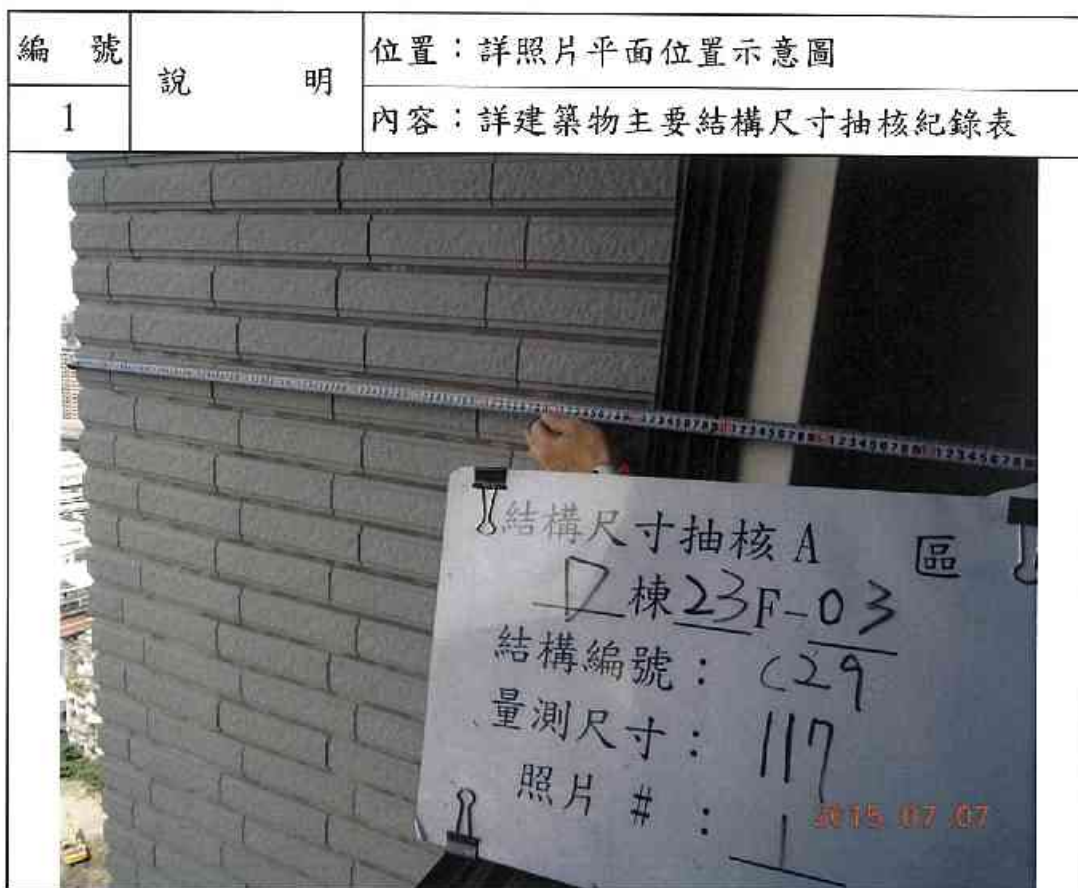 編 號
說 明
位置：詳照片平面位置示意圖
1
內容：詳建築物主要結構尺寸抽核紀錄表
結構尺寸抽核A 區
D棟23F-03
結構編號：C29
量測尺寸：117
照片 #：1
2015 07 07